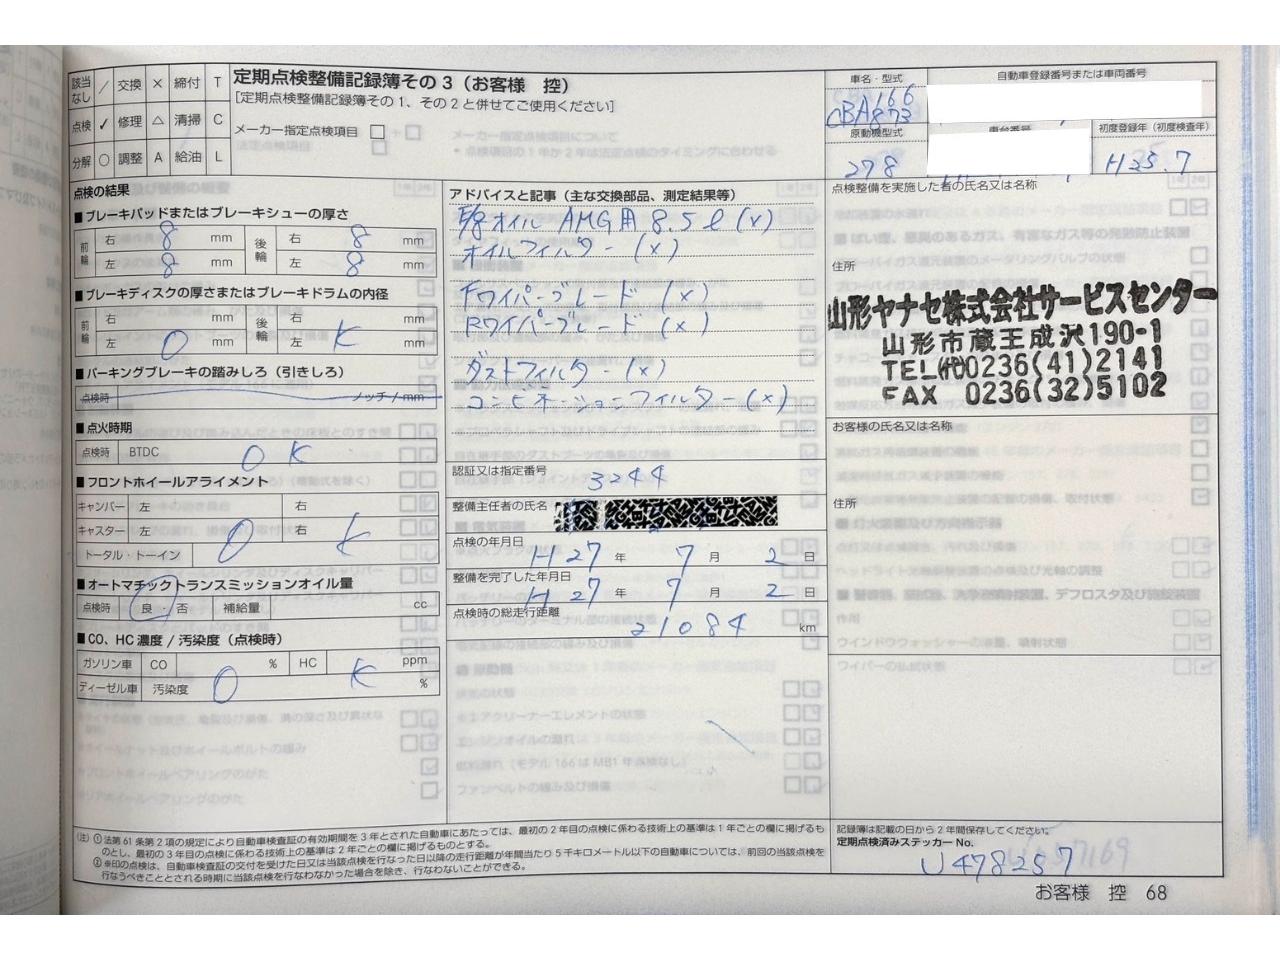 該当なし / 交換 × 締付 T
点検 ✓ 修理 △ 清掃 C
分解 ○ 調整 A 給油 L
定期点検整備記録簿その3（お客様 控）
［定期点検整備記録簿その1、その2と併せてご使用ください］
メーカー指定点検項目 □
車名・型式
166
CBA873
自動車登録番号または車両番号
原動機型式
278
車台番号
初度登録年（初度検査年）
H25.7
点検の結果
■ブレーキパッドまたはブレーキシューの厚さ
前輪 右 8 mm 後輪 右 8 mm
左 8 mm 左 8 mm
■ブレーキディスクの厚さまたはブレーキドラムの内径
前輪 右 mm 後輪 右 mm
左 O mm 左 K mm
■パーキングブレーキの踏みしろ（引きしろ）
点検時 ノッチ/mm
■点火時期
点検時 BTDC OK
■フロントホイールアライメント
キャンバー 左 右
キャスター 左 O 右 K
トータル・トーイン
■オートマチックトランスミッションオイル量
点検時 良・否 補給量 cc
■CO、HC濃度/汚染度（点検時）
ガソリン車 CO % HC ppm
ディーゼル車 汚染度 O K %
アドバイスと記事（主な交換部品、測定結果等）
E/gオイル AMG用 8.5ℓ(×)
オイルフィルター (×)
Fワイパーブレード (×)
Rワイパーブレード (×)
ダストフィルター (×)
コンビネーションフィルター (×)
認証又は指定番号
3244
整備主任者の氏名
点検の年月日
H27年 7月 2日
整備を完了した年月日
H27年 7月 2日
点検時の総走行距離
21084 km
点検整備を実施した者の氏名又は名称
住所
山形ヤナセ株式会社サービスセンター
山形市蔵王成沢190-1
TEL(代)0236(41)2141
FAX 0236(32)5102
お客様の氏名又は名称
住所
(注) ①法第61条第2項の規定により自動車検査証の有効期間を3年とされた自動車にあたっては、最初の2年目の点検に係わる技術上の基準は1年ごとの欄に掲げるも
のとし、最初の3年目の点検に係わる技術上の基準は2年ごとの欄に掲げるものとする。
②※印の点検は、自動車検査証の交付を受けた日又は当該点検を行なった日以降の走行距離が年間当たり5千キロメートル以下の自動車については、前回の当該点検を
行なうべきこととされる時期に当該点検を行なわなかった場合を除き、行なわないことができる。
記録簿は記載の日から2年間保存してください。
定期点検済みステッカー No.
U478257
お客様 控 68